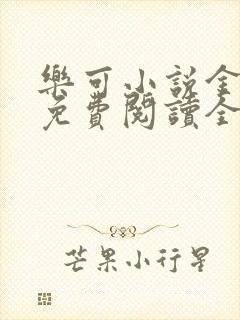 樂可小説全
免費閱讀全
芒果小行星